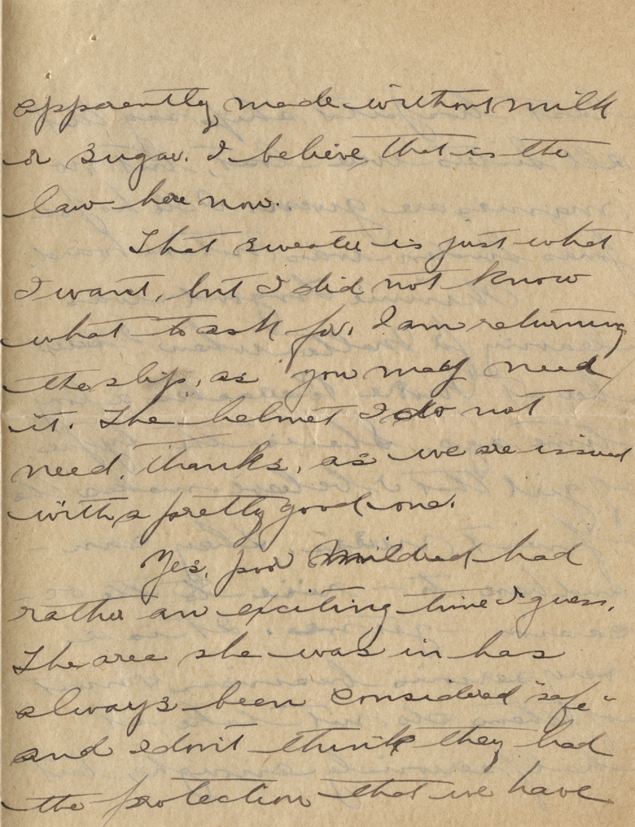 apparently made without milk
or sugar. I believe that is the
law here now.
That sweater is just what
I want, but I did not know
what to ask for. I am returning
the slip, as you may need
it. The helmet I do not
need, thanks, as we are issued
with a pretty good one.
Yes, poor Mildred had
rather an exciting time I guess.
The area she was in has
always been considered "safe"
and I don't think they had
the protection that we have